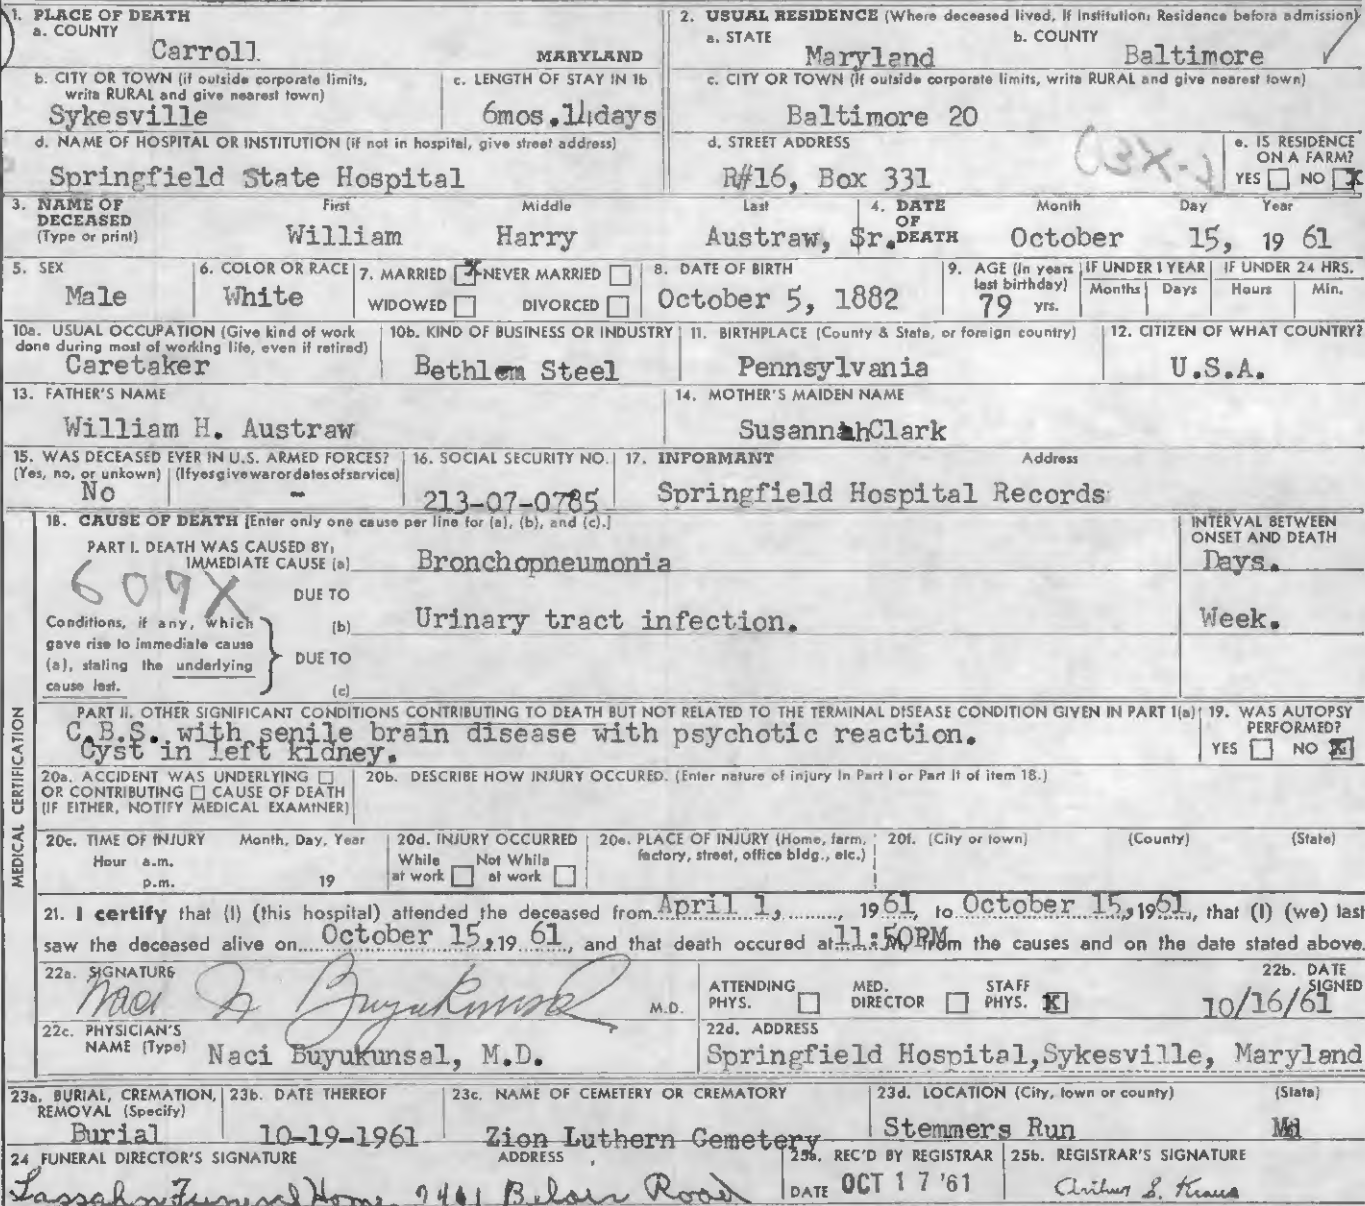 1. PLACE OF DEATH
a. COUNTY
Carroll
MARYLAND
2. USUAL RESIDENCE (Where deceased lived, If Institution: Residence before admission)
a. STATE
Maryland
b. COUNTY
Baltimore
b. CITY OR TOWN (if outside corporate limits, write RURAL and give nearest town)
Sykesville
c. LENGTH OF STAY IN 1b
6mos.14days
c. CITY OR TOWN (If outside corporate limits, write RURAL and give nearest town)
Baltimore 20
d. NAME OF HOSPITAL OR INSTITUTION (if not in hospital, give street address)
Springfield State Hospital
d. STREET ADDRESS
R#16, Box 331
e. IS RESIDENCE ON A FARM?
YES NO X
3. NAME OF DECEASED (Type or print)
First Middle Last
William Harry Austraw, Sr.
4. DATE OF DEATH
Month Day Year
October 15, 19 61
5. SEX
Male
6. COLOR OR RACE
White
7. MARRIED X NEVER MARRIED
WIDOWED DIVORCED
8. DATE OF BIRTH
October 5, 1882
9. AGE (In years last birthday)
79 yrs.
IF UNDER 1 YEAR
Months Days
IF UNDER 24 HRS.
Hours Min.
10a. USUAL OCCUPATION (Give kind of work done during most of working life, even if retired)
Caretaker
10b. KIND OF BUSINESS OR INDUSTRY
Bethlem Steel
11. BIRTHPLACE (County & State, or foreign country)
Pennsylvania
12. CITIZEN OF WHAT COUNTRY?
U.S.A.
13. FATHER'S NAME
William H. Austraw
14. MOTHER'S MAIDEN NAME
SusannahClark
15. WAS DECEASED EVER IN U.S. ARMED FORCES?
(Yes, no, or unkown) (If yes give war or dates of service)
No -
16. SOCIAL SECURITY NO.
213-07-0785
17. INFORMANT Address
Springfield Hospital Records
MEDICAL CERTIFICATION
18. CAUSE OF DEATH [Enter only one cause per line for (a), (b), and (c).]
INTERVAL BETWEEN ONSET AND DEATH
PART I. DEATH WAS CAUSED BY:
IMMEDIATE CAUSE (a) Bronchopneumonia Days.
609X
DUE TO
Conditions, if any, which gave rise to immediate cause (a), stating the underlying cause last.
(b) Urinary tract infection. Week.
DUE TO
(c)
PART II. OTHER SIGNIFICANT CONDITIONS CONTRIBUTING TO DEATH BUT NOT RELATED TO THE TERMINAL DISEASE CONDITION GIVEN IN PART I(a)
C.B.S. with senile brain disease with psychotic reaction.
Cyst in left kidney.
19. WAS AUTOPSY PERFORMED?
YES NO X
20a. ACCIDENT WAS UNDERLYING
OR CONTRIBUTING CAUSE OF DEATH
(IF EITHER, NOTIFY MEDICAL EXAMINER)
20b. DESCRIBE HOW INJURY OCCURED. (Enter nature of injury in Part I or Part II of item 18.)
20c. TIME OF INJURY Month, Day, Year
Hour a.m.
p.m. 19
20d. INJURY OCCURRED
While at work Not While at work
20e. PLACE OF INJURY (Home, farm, factory, street, office bldg., etc.)
20f. (City or town) (County) (State)
21. I certify that (I) (this hospital) attended the deceased from April 1, 1961, to October 15, 1961, that (I) (we) last
saw the deceased alive on October 15, 19 61, and that death occured at 11:50PM, from the causes and on the date stated above.
22a. SIGNATURE
Naci Buyukunsal M.D.
ATTENDING PHYS. MED. DIRECTOR STAFF PHYS. X
22b. DATE SIGNED
10/16/61
22c. PHYSICIAN'S NAME (Type)
Naci Buyukunsal, M.D.
22d. ADDRESS
Springfield Hospital, Sykesville, Maryland
23a. BURIAL, CREMATION, REMOVAL (Specify)
Burial
23b. DATE THEREOF
10-19-1961
23c. NAME OF CEMETERY OR CREMATORY
Zion Luthern Cemetery
23d. LOCATION (City, town or county) (State)
Stemmers Run Md
24 FUNERAL DIRECTOR'S SIGNATURE ADDRESS
Lassahn Funeral Home 7401 Belair Road
25a. REC'D BY REGISTRAR
DATE OCT 17 '61
25b. REGISTRAR'S SIGNATURE
Arthur S. Kraus